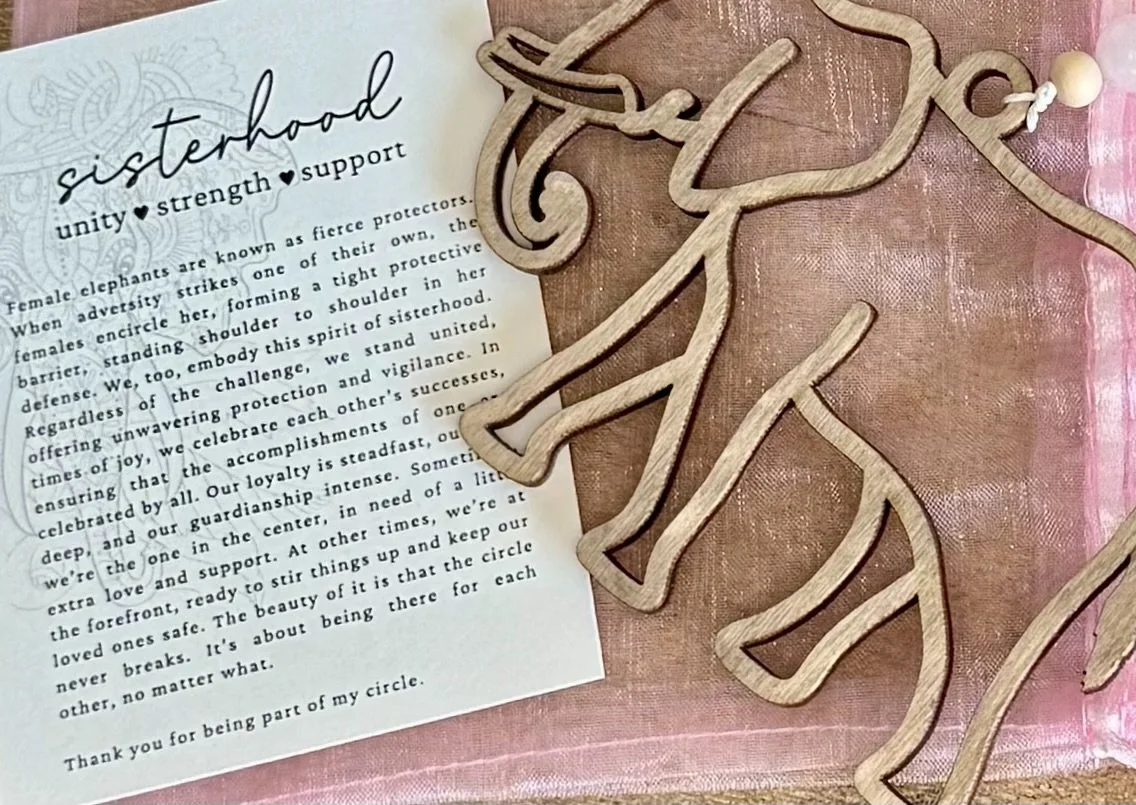 sisterhood
unity ♥ strength ♥ support
Female elephants are known as fierce protectors.
When adversity strikes one of their own, the
females encircle her, forming a tight protective
barrier, standing shoulder to shoulder in her
defense. We, too, embody this spirit of sisterhood.
Regardless of the challenge, we stand united,
offering unwavering protection and vigilance. In
times of joy, we celebrate each other's successes,
ensuring that the accomplishments of one
celebrated by all. Our loyalty is steadfast,
deep, and our guardianship intense.
we're the one in the center, in need of a
extra love and support. At other times, we're at
the forefront, ready to stir things up and keep our
loved ones safe. The beauty of it is that the circle
never breaks. It's about being there for each
other, no matter what.
Thank you for being part of my circle.